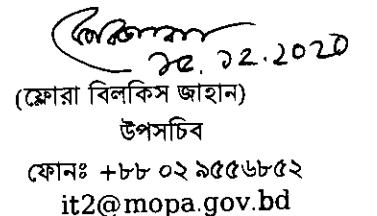 ১৫.১২.2020
(ফ্লোরা বিলকিস জাহান)
উপসচিব
ফোনঃ +৮৮ ০২ ৯৫৫৬৮৫২
it2@mopa.gov.bd